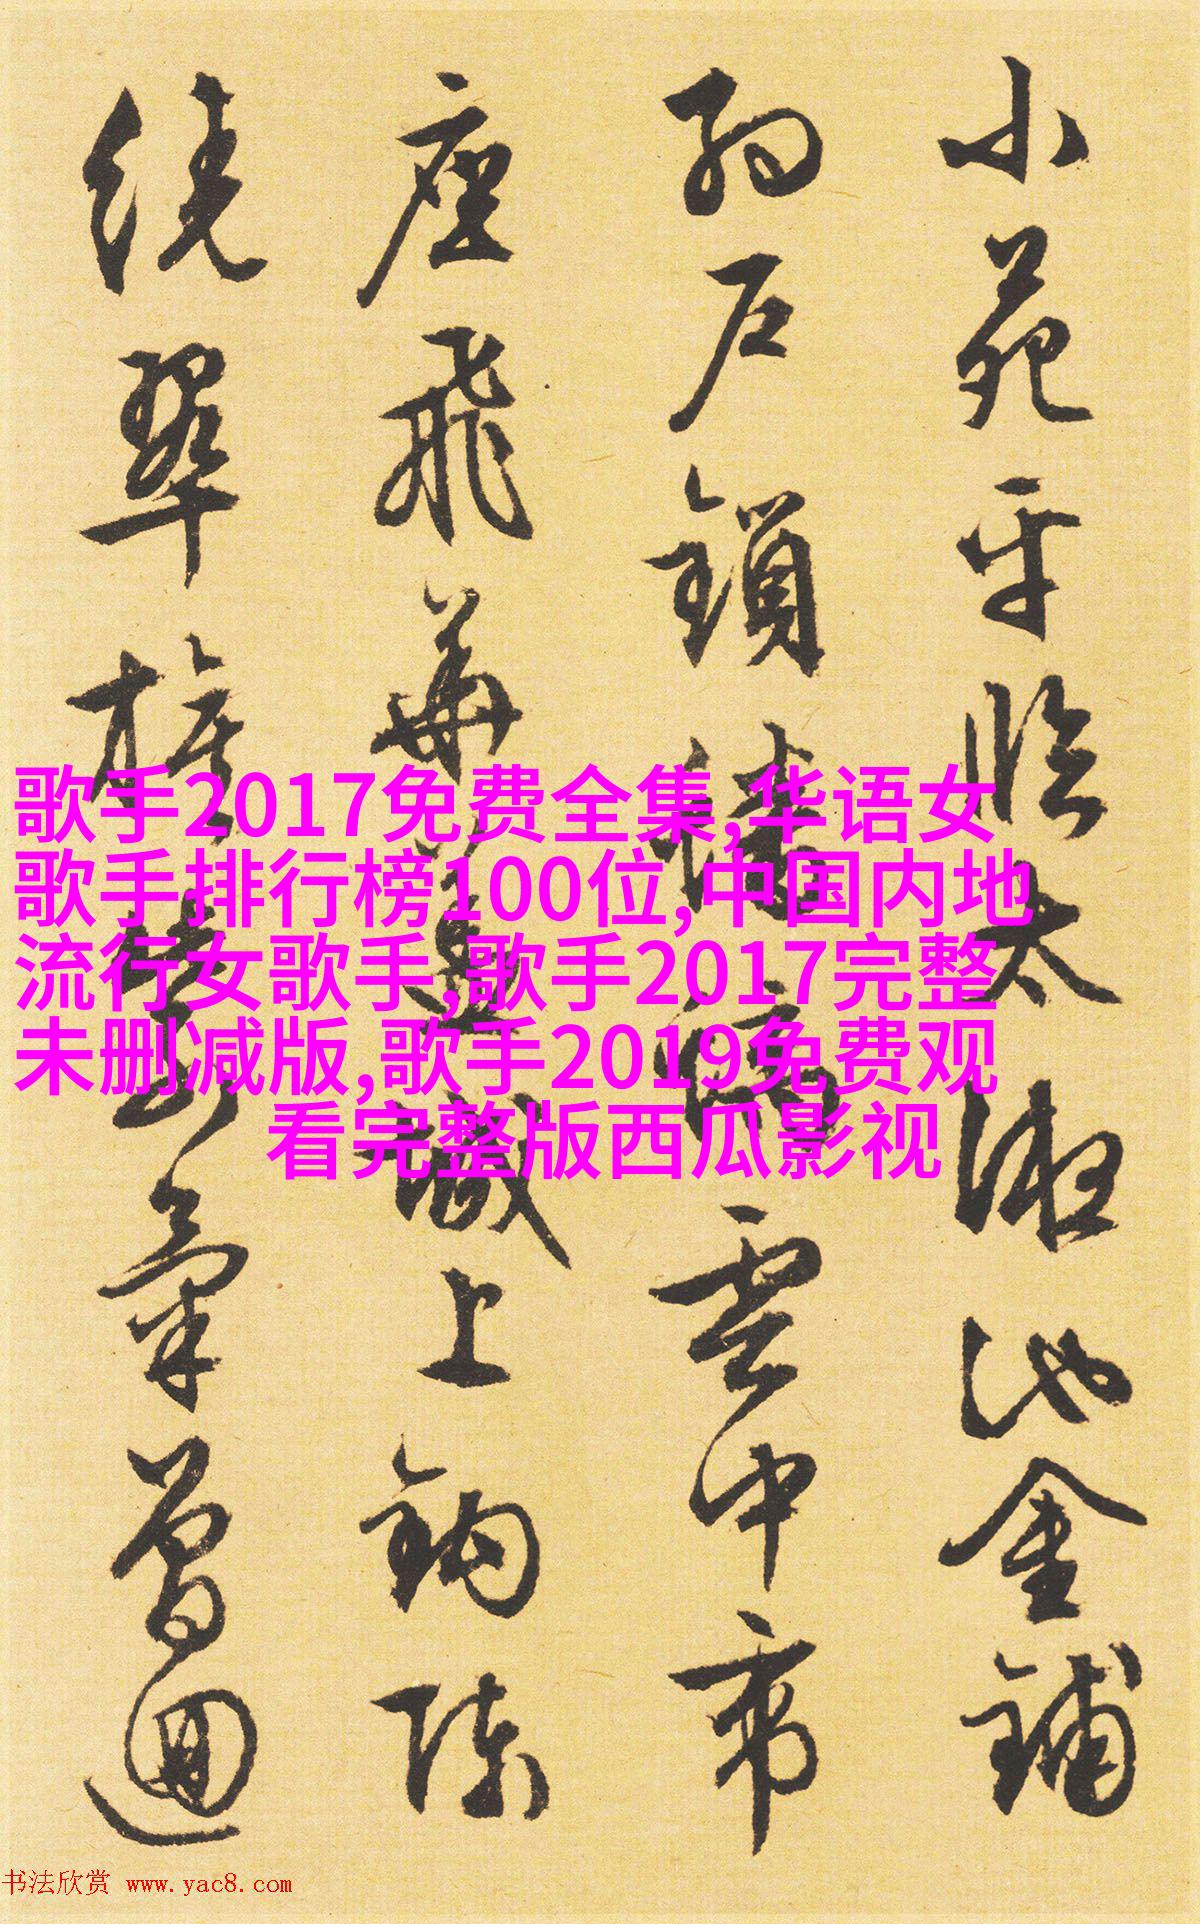 小苑平臨太液池金鋪
約戶鎖蟠螭雲中帝
座飛華蓋城上鈎陳
繞翠旗紫氣曾迴
歌手2017免费全集,华语女
歌手排行榜100位,中国内地
流行女歌手,歌手2017完整
未删减版,歌手2019免费观
看完整版西瓜影视
书法欣赏 www.yac8.com